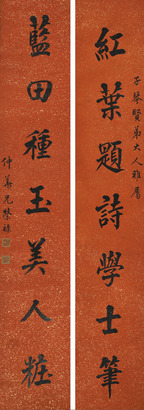 子琴賢弟大人雅屬
紅葉題詩學士筆
藍田種玉美人粧
仲華兄榮祿